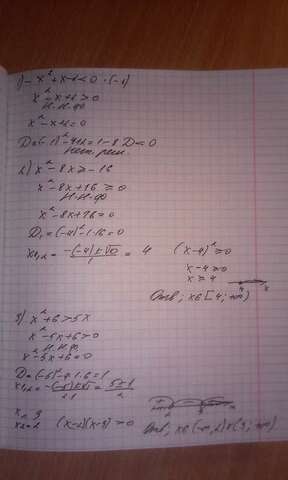 1) -x²+x-2<0 ·(-1)
x²-x+2>0
Н.Н.Ф
x²-x+2=0
D=(-1)²-4·2=1-8 D<0
Нет. реш.
2) x²-8x≥-16
x²-8x+16≥0
Н.Н.Ф
x²-8x+16=0
D₁=(-4)²-1·16=0
x₁,₂=-(-4)±√0/1=4 (x-4)²≥0
x-4≥0
x≥4
4 x
Ответ; x∈[4;+∞)
3) x²+6>5x
x²-5x+6>0
Н.Н.Ф
x²-5x+6=0
D=(-5)²-4·1·6=1
x₁,₂=-(-5)±√1/2·1=5±1/2
x₁=3
x₂=2 (x-2)(x-3)>0
Ответ; x∈(-∞;2)∨(3;+∞)